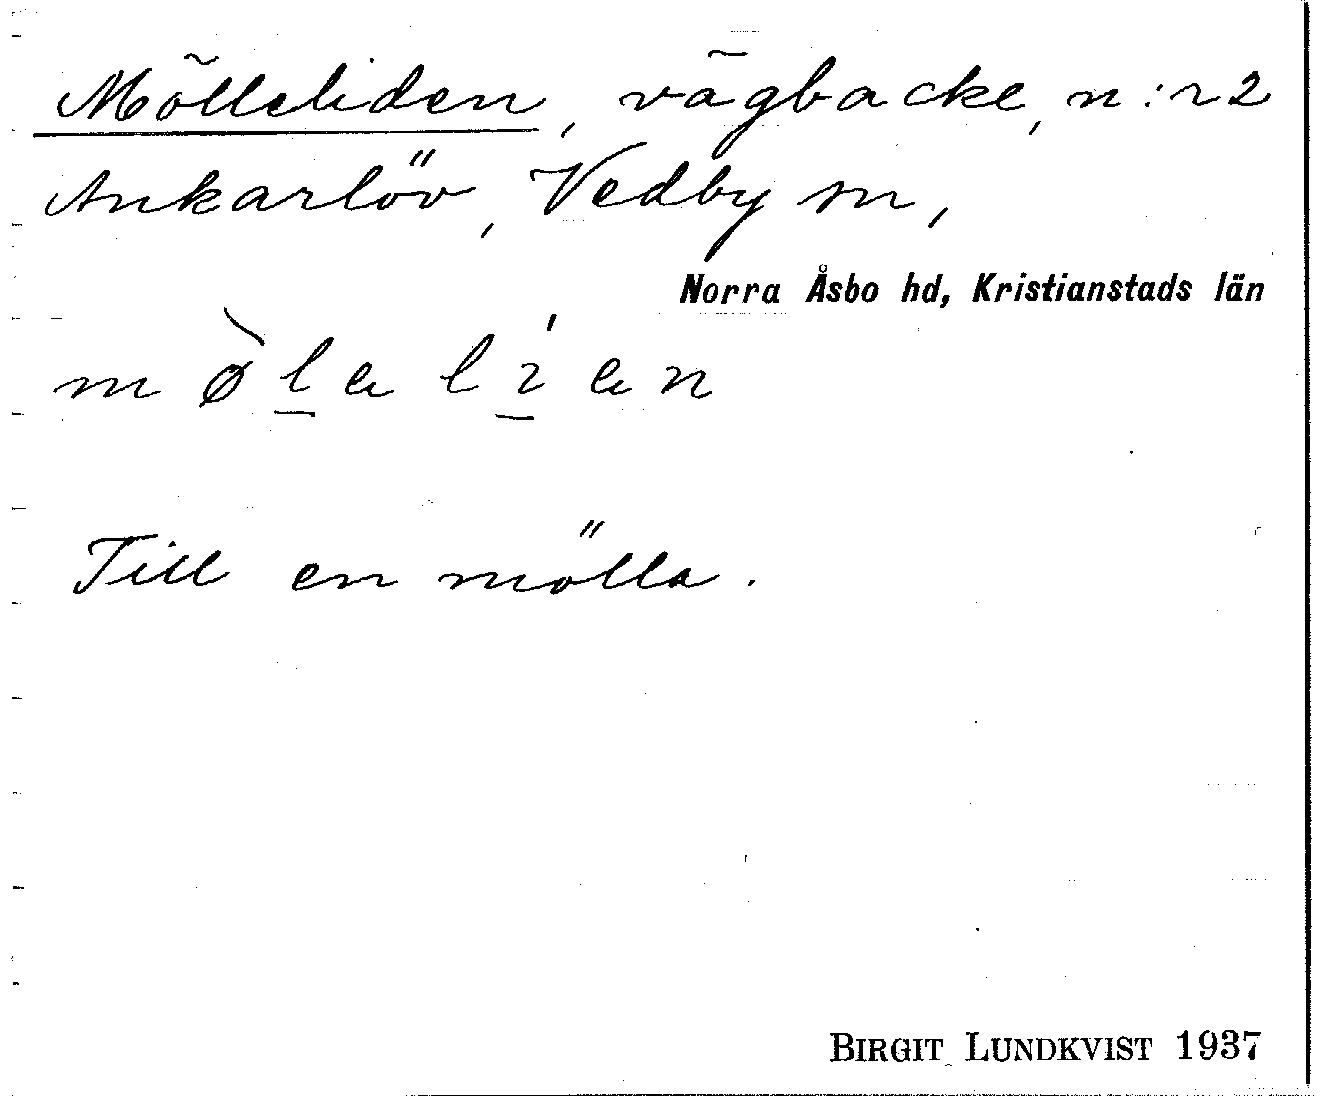 Mölleliden, vägbacke, n:r 2
Ankarlöv, Vedby sn,
Norra Åsbo hd, Kristianstads län
mø̀l̲a lí̲an
Till en mölla.
BIRGIT LUNDKVIST 1937